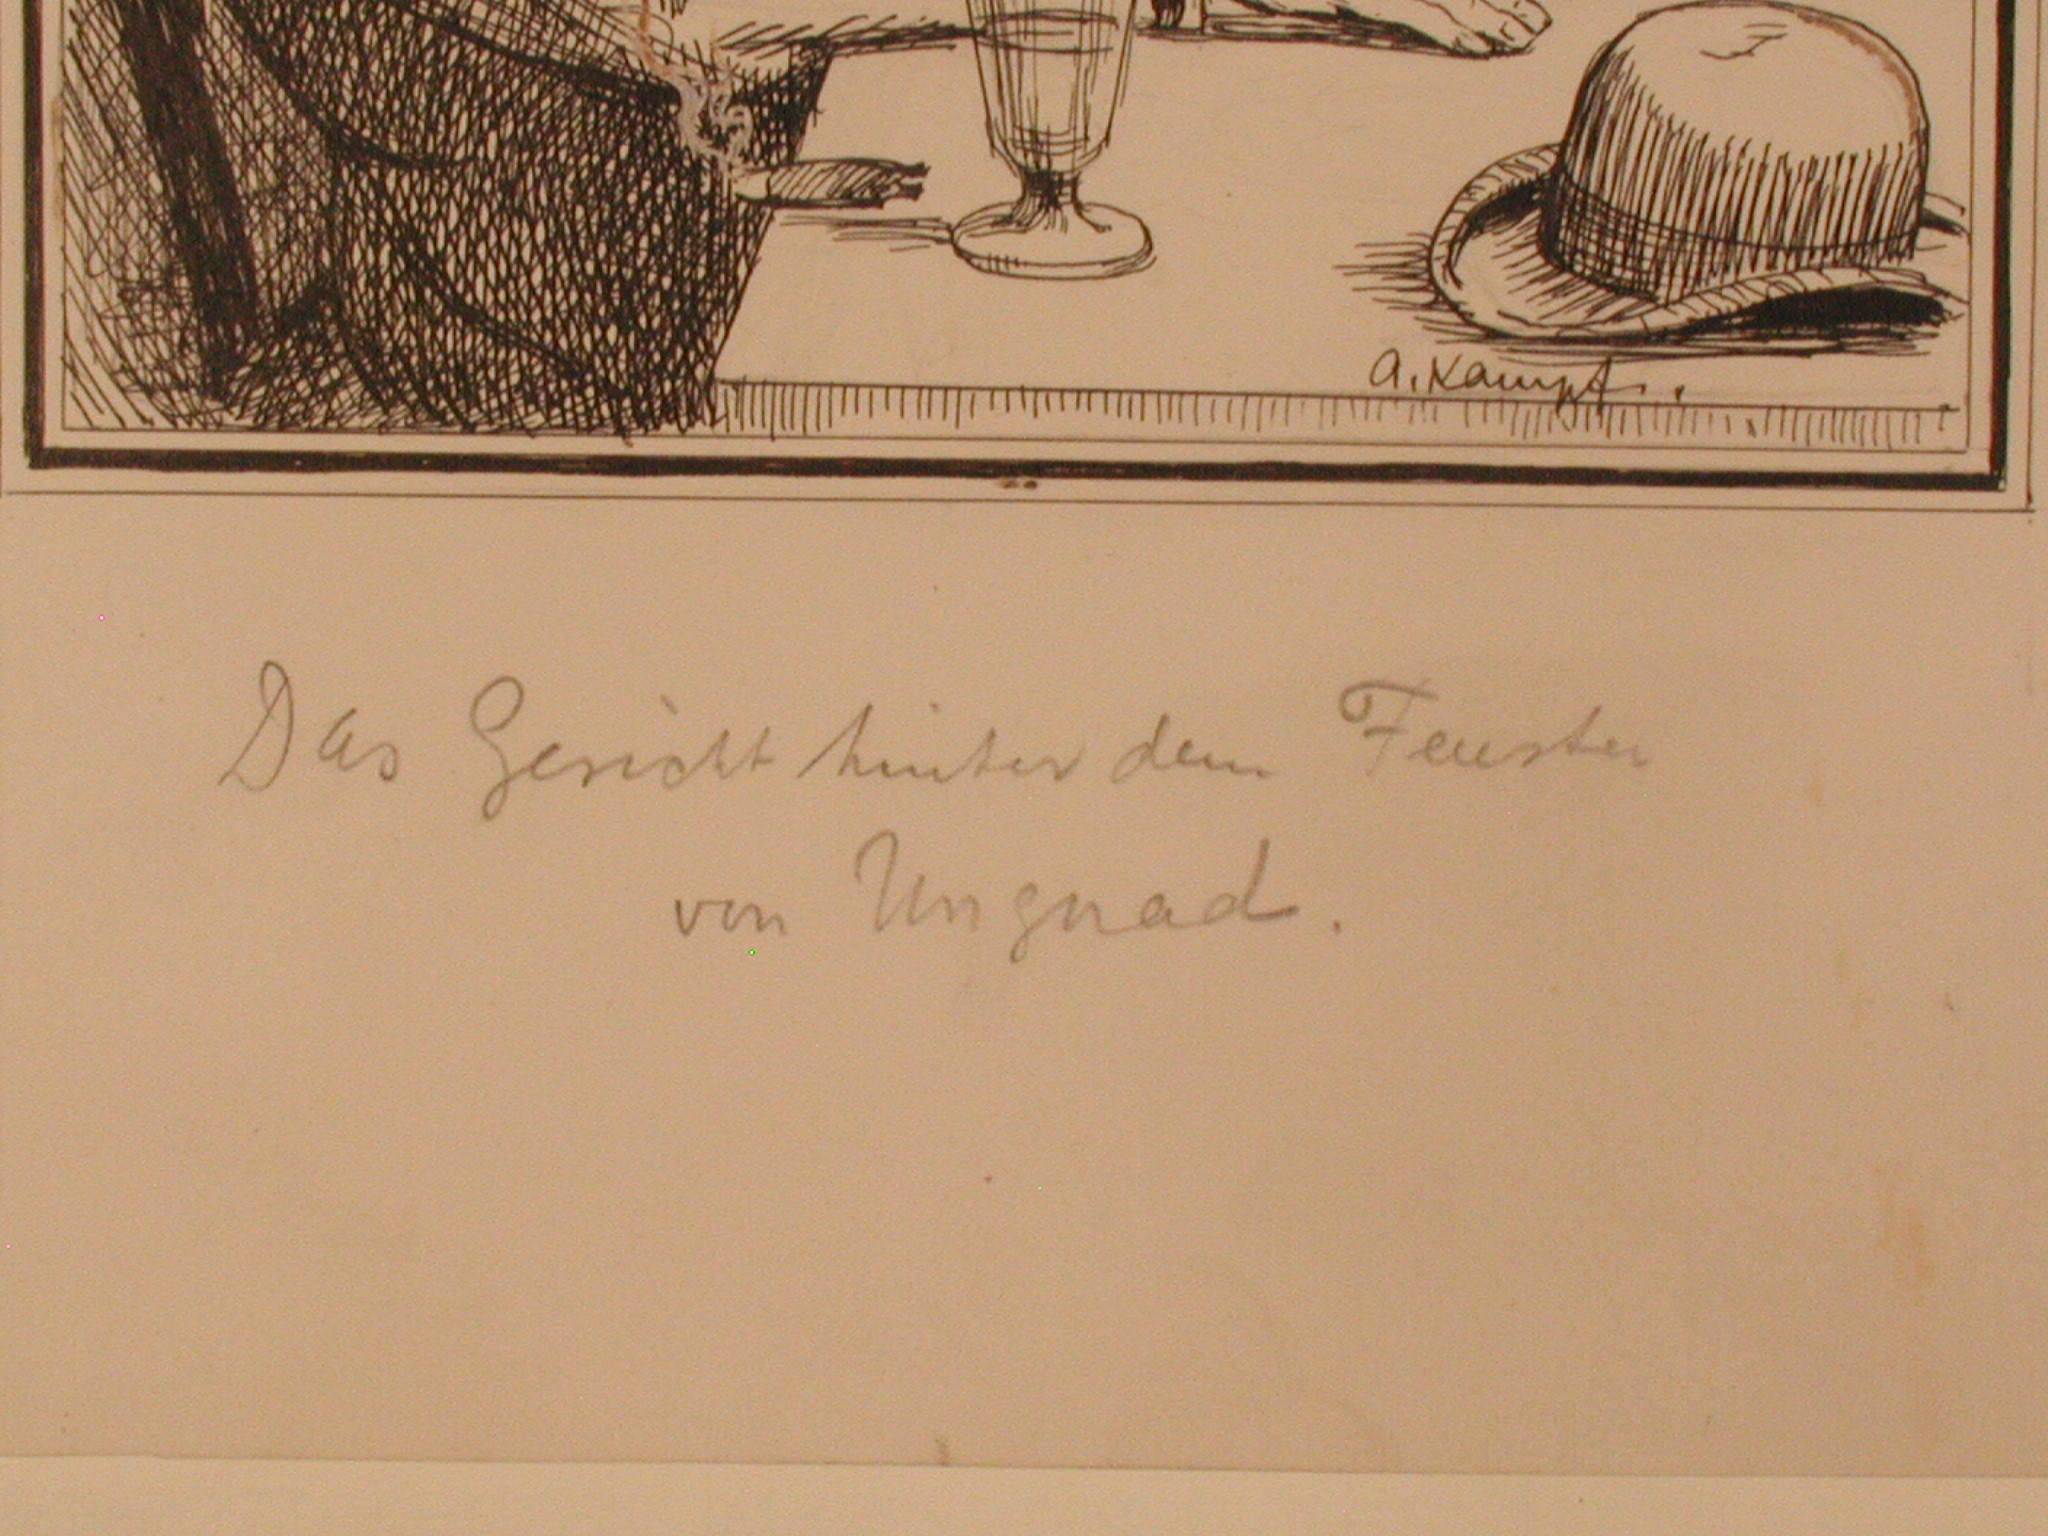 A. Kampf.
Das Gesicht hinter dem Fenster
von Ungnad.